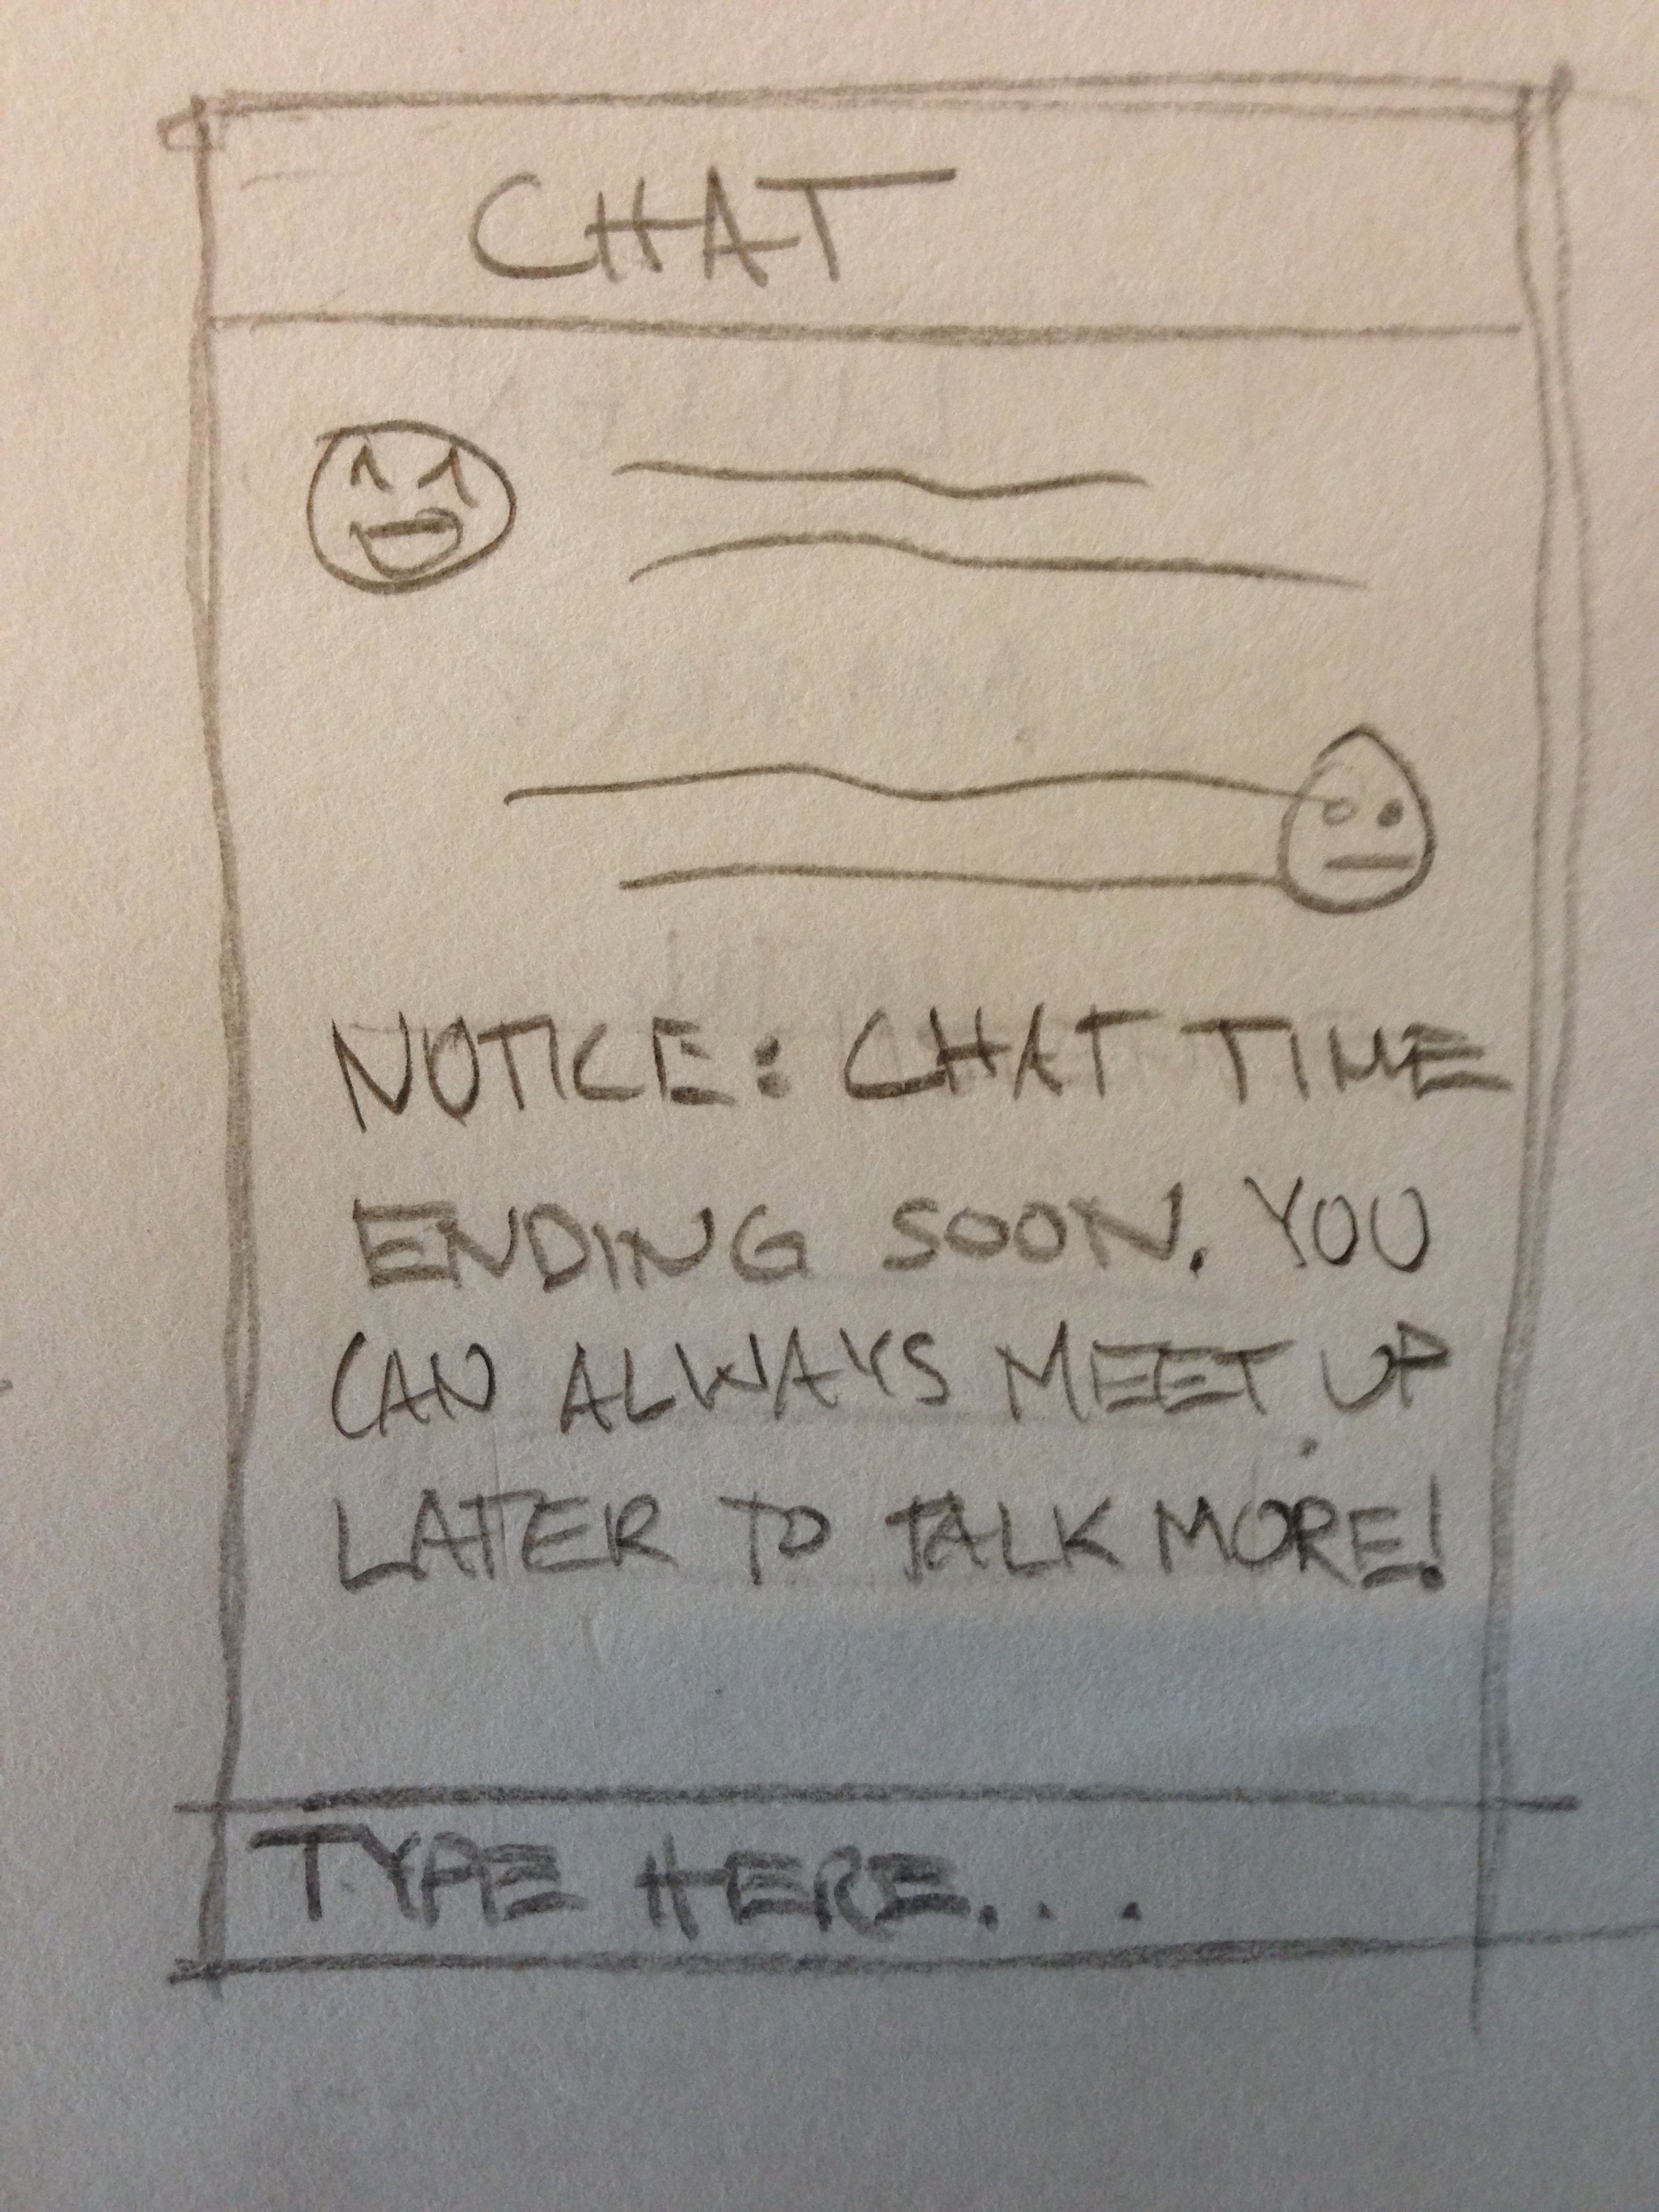 CHAT
NOTICE: CHAT TIME
ENDING SOON. YOU
CAN ALWAYS MEET UP
LATER TO TALK MORE!
TYPE HERE...